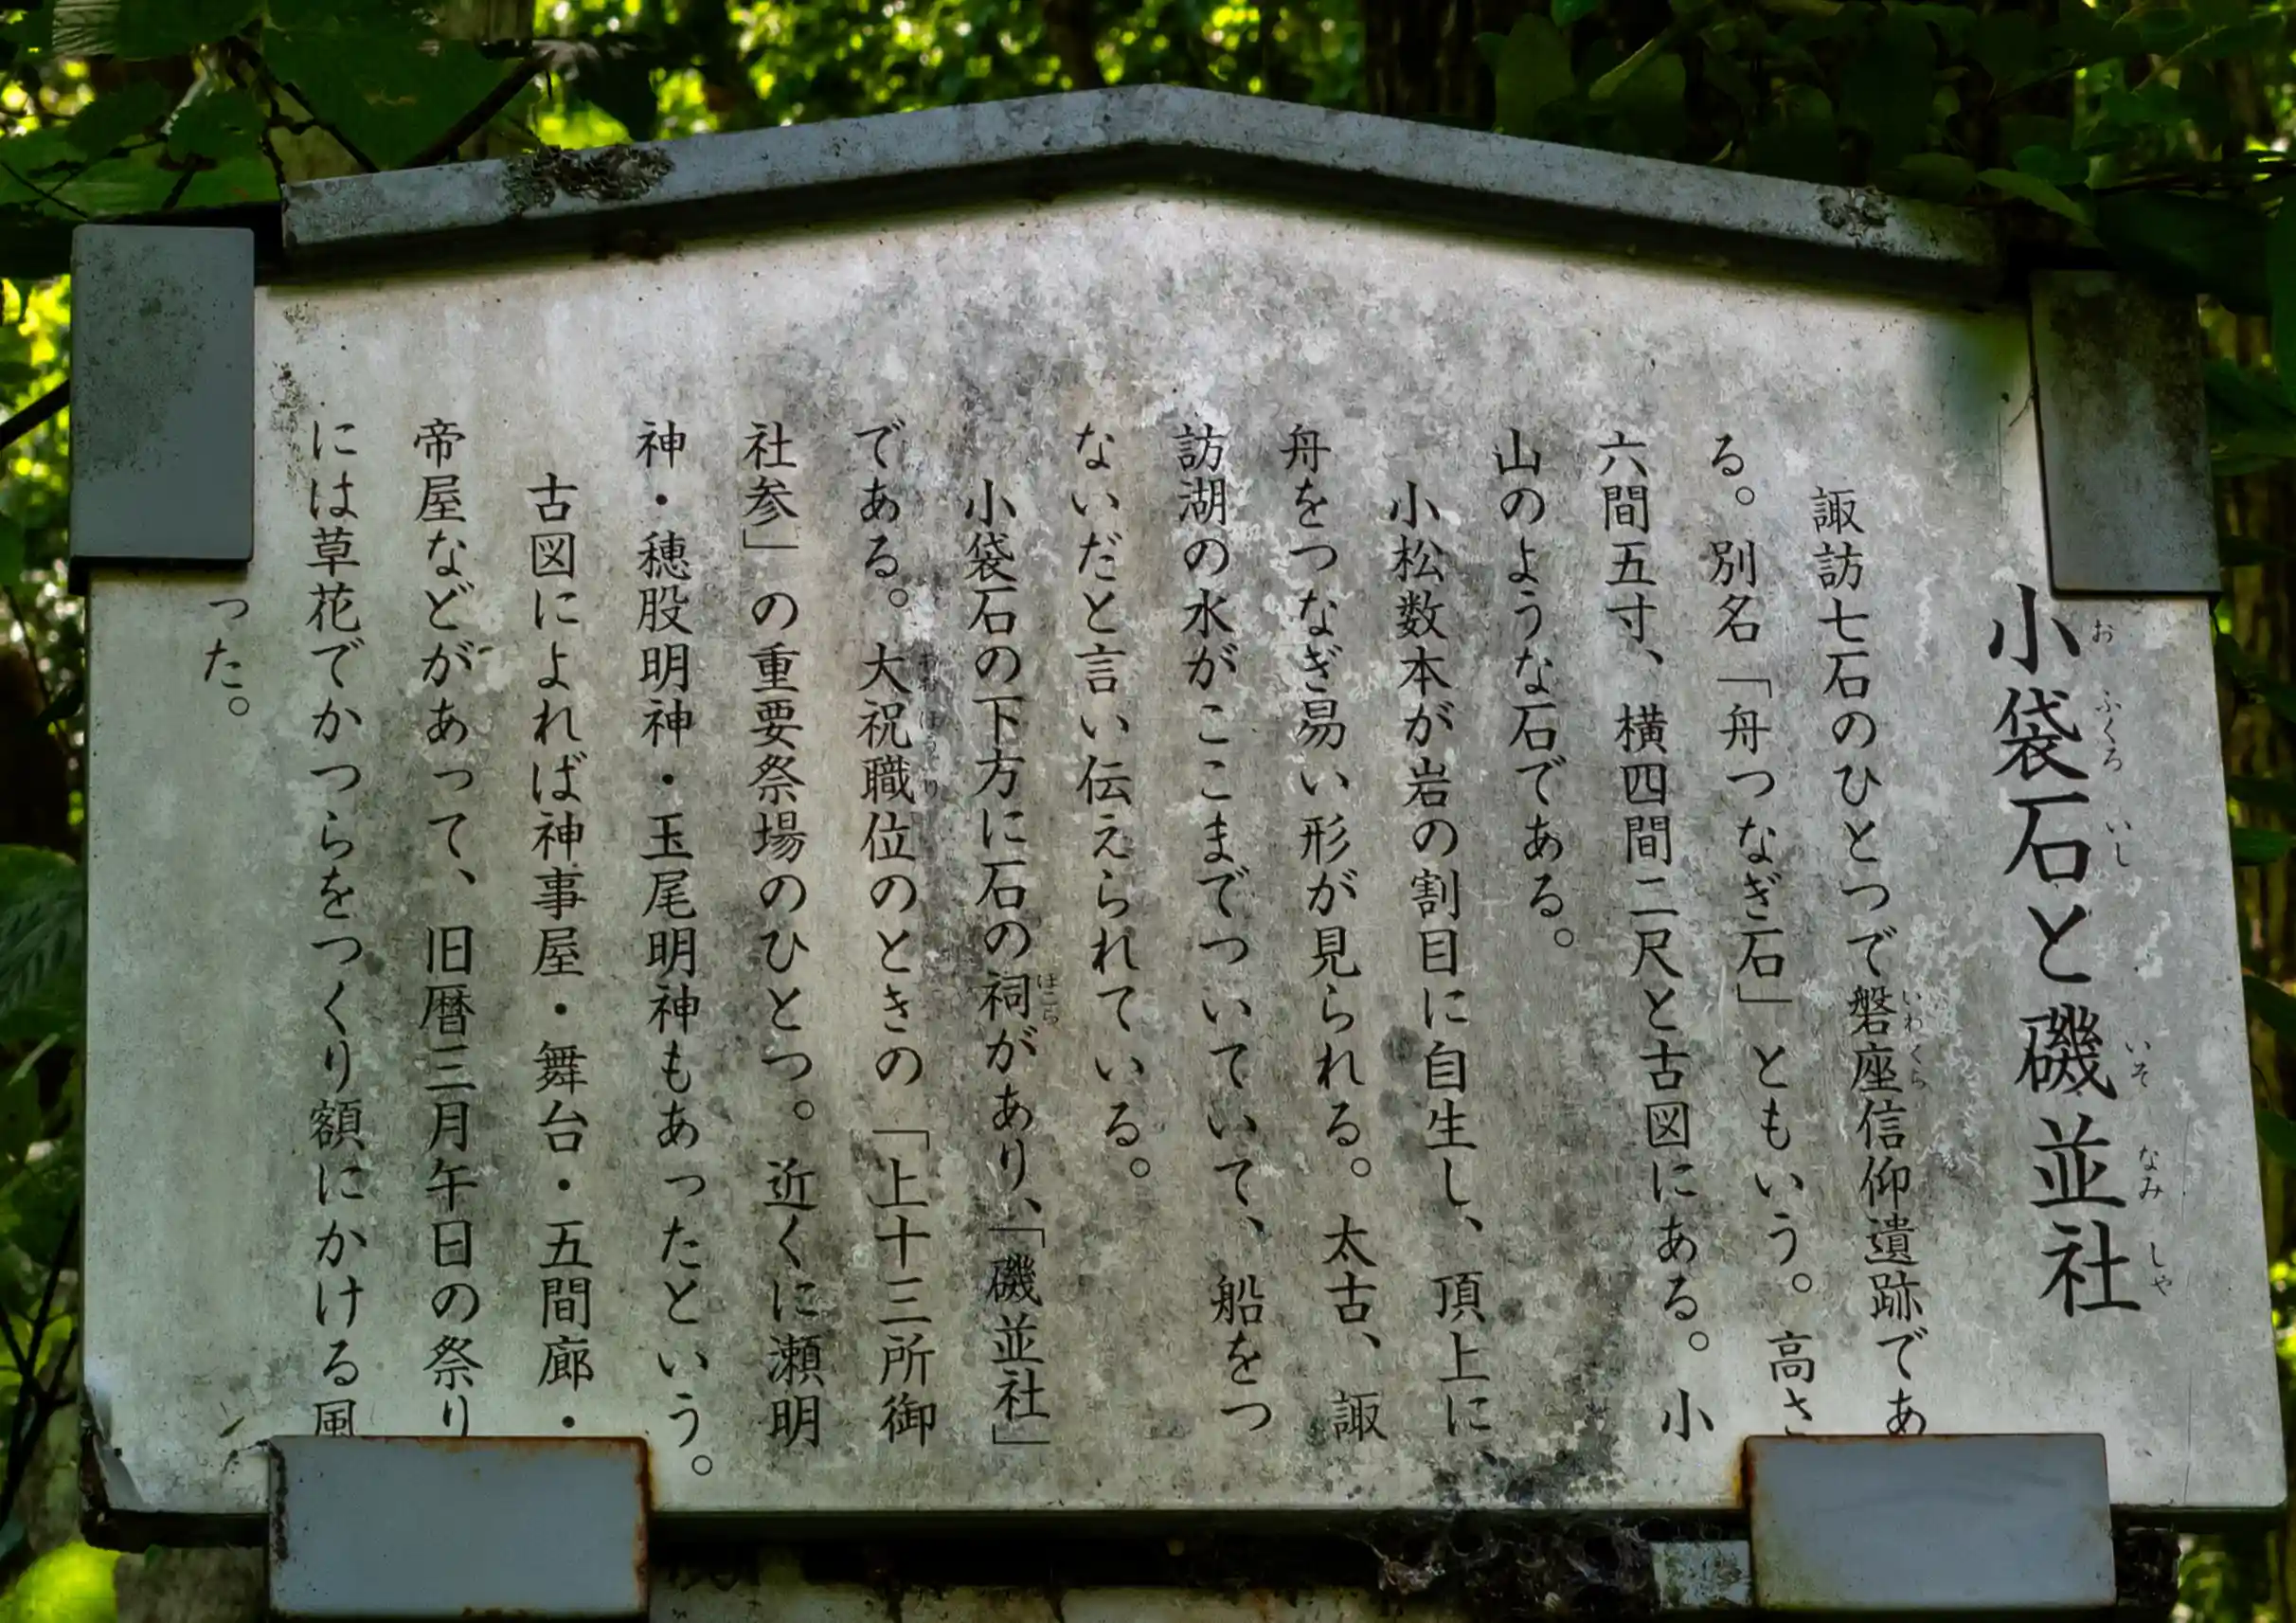 小袋石と磯並社
おふくろいし いそなみしゃ
諏訪七石のひとつで磐座信仰遺跡であ
いわくら
る。別名「舟つなぎ石」ともいう。高さ
六間五寸、横四間二尺と古図にある。小
山のような石である。
小松数本が岩の割目に自生し、頂上に、
舟をつなぎ易い形が見られる。太古、諏
訪湖の水がここまでついていて、船をつ
ないだと言い伝えられている。
小袋石の下方に石の祠があり、「磯並社」
ほこら
である。大祝職位のときの「上十三所御
社参」の重要祭場のひとつ。近くに瀬明
神・穂股明神・玉尾明神もあったという。
古図によれば神事屋・舞台・五間廊・
帝屋などがあって、旧暦三月午日の祭り
には草花でかつらをつくり額にかける風
った。